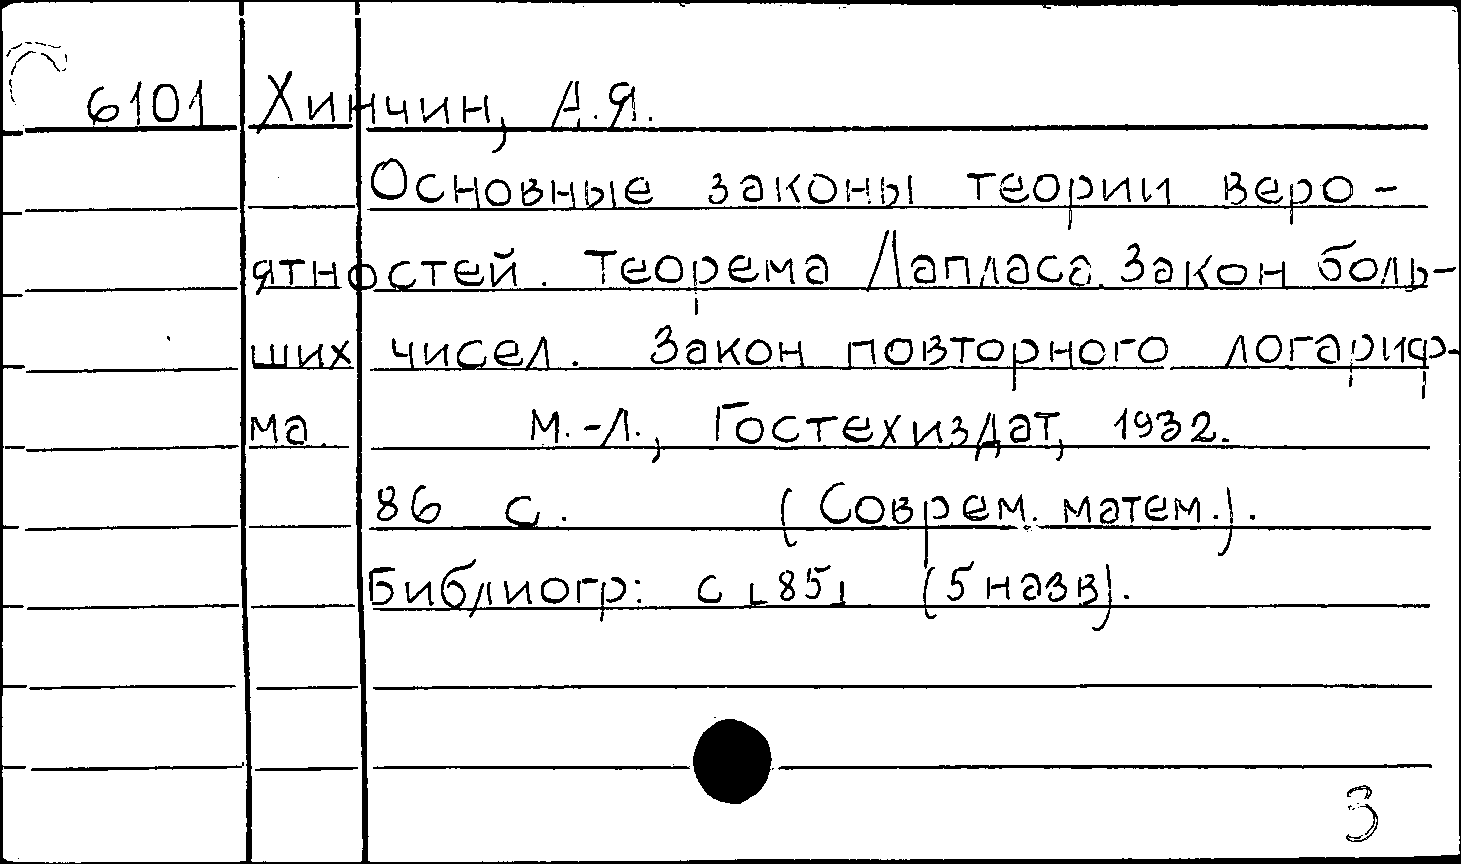 С 6101 Хинчин, А.Я.
Основные законы теории веро-
ятностей. Теорема Лапласа. Закон боль-
ших чисел. Закон повторного логариф-
ма. М.-Л., Гостехиздат, 1932.
86 с. (Соврем. матем.).
Библиогр: с [85] (5 назв).
3